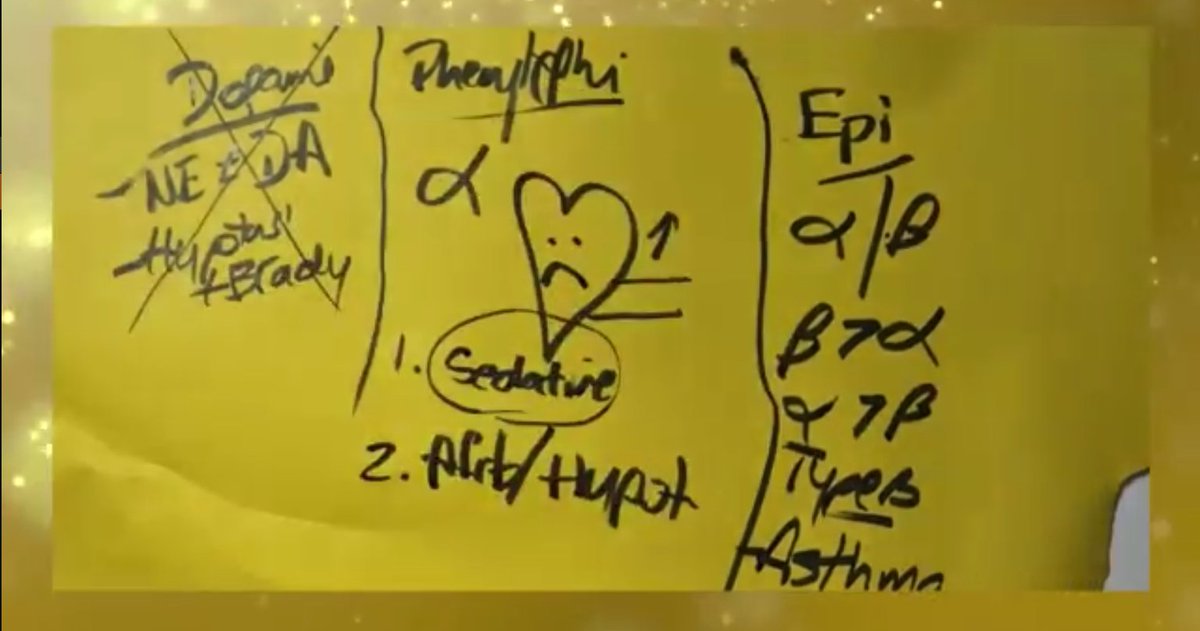 Dopami
- NE + DA
- Hypotns'
+ Brady
Phenylephi
α
↑
1. Sedative
2. Afib/Hypot
Epi
α/β
β > α
α > β
Types
+ Asthma